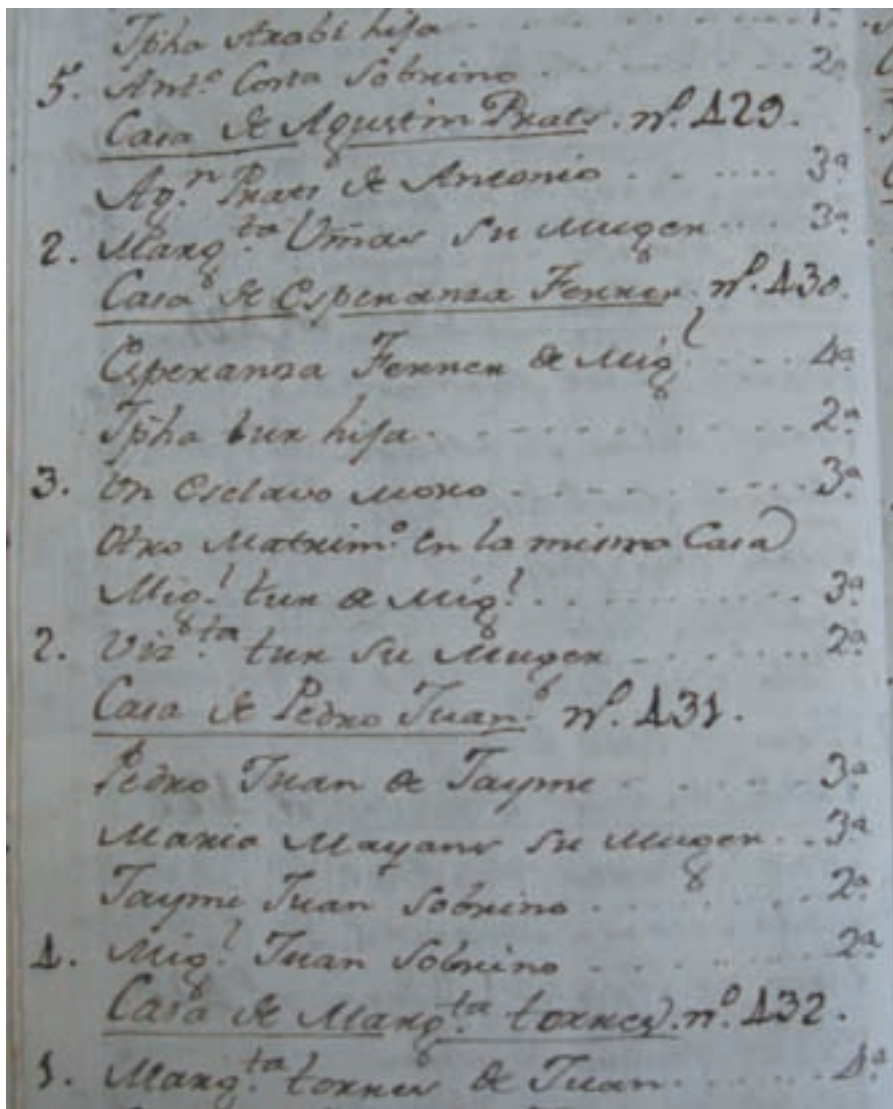 Jpha Arabi hija
5. Ant.º Costa Sobrino 2ª
Casa de Agustin Prats. nº. 429.
Ag.n Prats de Antonio 3ª
2. Marg.ta Umar Su Muger 3ª
Casa de Esperansa Ferrer. nº. 430.
Esperansa Ferrer de Mig.l 4ª
Jpha tur hija 2ª
3. Un Esclavo Moro 3ª
Otro Matrim.º en la misma Casa
Mig.l tur de Mig.l 3ª
2. Vis.ta tur Su Muger 2ª
Casa de Pedro Juan. nº. 431.
Pedro Juan de Jayme 3ª
Maria Mayans Su Muger 3ª
Jayme Juan Sobrino 2ª
4. Mig.l Juan Sobrino 2ª
Casa de Marg.ta torres. nº 432.
1. Marg.ta torres de Juan 4ª